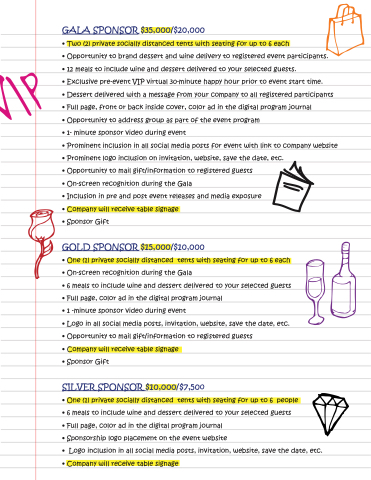 GALA SPONSOR $35,000/$20,000
• Two (2) private socially distanced tents with seating for up to 6 each
• Opportunity to brand dessert and wine delivery to registered event participants.
• 12 meals to include wine and dessert delivered to your selected guests.
• Exclusive pre-event VIP virtual 30-minute happy hour prior to event start time.
• Dessert delivered with a message from your Company to all registered participants
• Full page, front or back inside cover, color ad in the digital program journal
• Opportunity to address group as part of the event program
• 1- minute sponsor video during event
VIP
• Prominent inclusion in all social media posts for event with link to Company website
• Prominent logo inclusion on invitation, website, save the date, etc.
• Opportunity to mail gift/information to registered guests
• On-screen recognition during the Gala
• Inclusion in pre and post event releases and media exposure
• Company will receive table signage
• Sponsor Gift
GOLD SPONSOR $15,000/$10,000
• One (1) private socially distanced tents with seating for up to 6 each
• On-screen recognition during the Gala
• 6 meals to include wine and dessert delivered to your selected guests
• Full page, color ad in the digital program journal
• 1 -minute sponsor video during event
• Logo in all social media posts, invitation, website, save the date, etc.
• Opportunity to mail gift/information to registered guests
• Company will receive table signage
• Sponsor Gift
SILVER SPONSOR $10,000/$7,500
• One (1) private socially distanced tents with seating for up to 6 people
• 6 meals to include wine and dessert delivered to your selected guests
• Full page, color ad in the digital program journal
• Sponsorship logo placement on the event website
• Logo inclusion in all social media posts, invitation, website, save the date, etc.
• Company will receive table signage